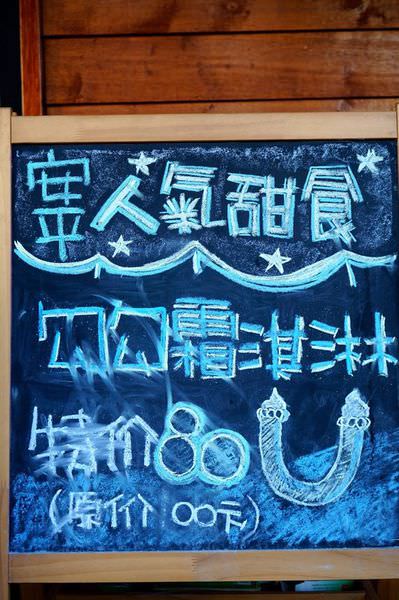 人氣甜食
霜淇淋
特价80
(原价 00元)